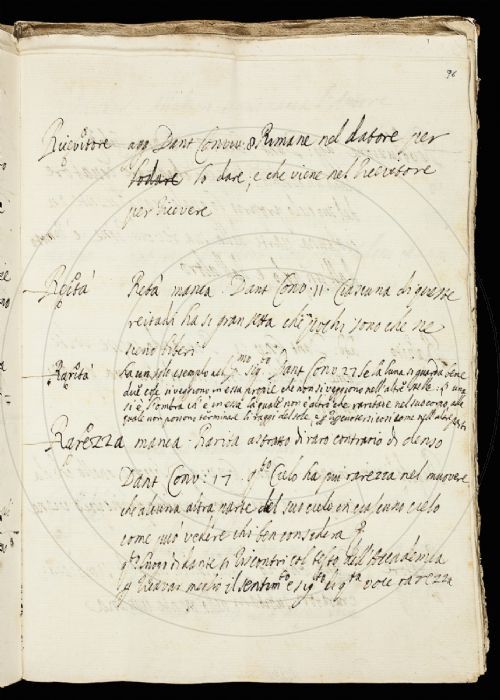 96
Ricevitore agg. Dant Conviv. 8. Rimane nel datore per
lodare lo dare, e che viene nel Ricevitore
per ricevere
Reità Reità manca. Dant Conv. 11. Ciascuna di queste
reitadi ha sì gran setta che pochi sono che ne
sieno liberi
Rarità ha un solo esempio Dant Conv. 27 Se la luna si guarda bene
due cose si veggiono in essa proprie che non si veggiono nell'altre stelle. l'una
si è l'ombra ch'è in essa la quale non è altro che raritade nel suo corpo, alla
quale non possono terminare li raggi del sole e ripercuotersi così come nell'altre parti
Rarezza manca. Rarità astratto di raro contrario di denso
Dant Conv: 17 Cielo ha più rarezza nel muovere
che alcuna altra parte del suo cielo in ciascuno cielo
come può vedere chi ben considera
di dante si Riscontri col testo dell'Accademia
p Ricavar meglio il sentim.to e di q.ta voce rarezza